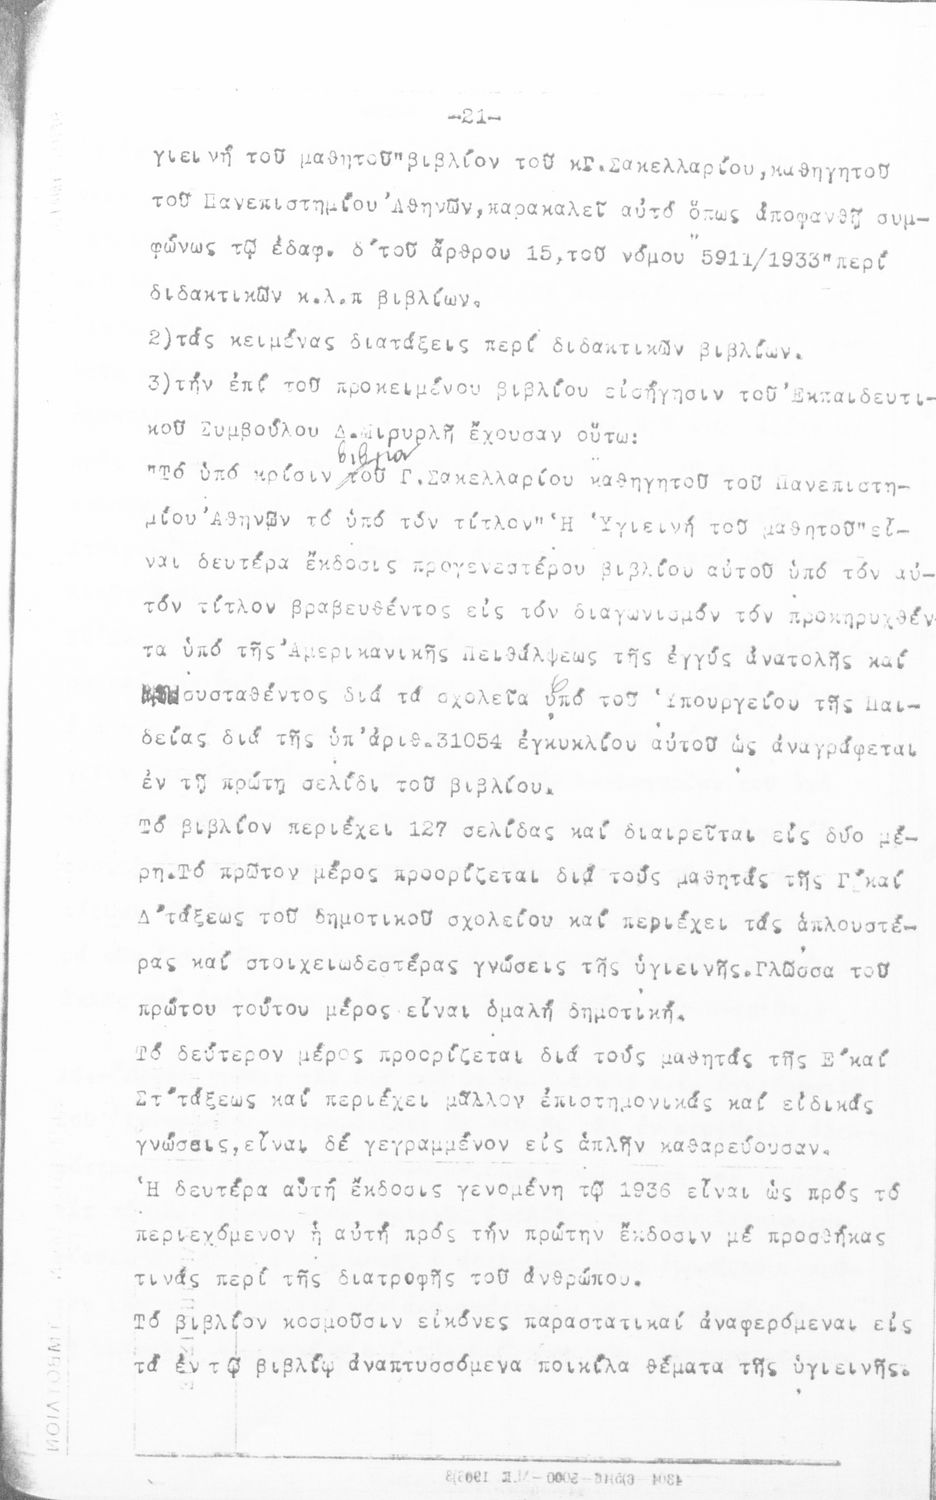 -21-
γιεινή τοῦ μαθητοῦ"βιβλίον τοῦ κΓ.Σακελλαρίου,καθηγητοῦ
τοῦ Πανεπιστημίου Ἀθηνῶν,παρακαλεῖ αὐτό ὅπως ἀποφανθῇ συμ-
φώνως τῷ ἐδαφ. δ΄τοῦ ἄρθρου 15,τοῦ νόμου 5911/1933"περί
διδακτικῶν κ.λ.π βιβλίων.
2)τάς κειμένας διατάξεις περί διδακτικῶν βιβλίων.
3)τήν ἐπί τοῦ προκειμένου βιβλίου εἰσήγησιν τοῦ Ἐκπαιδευτι-
κοῦ Συμβούλου Δ. ἔχουσαν οὕτω:
βιβλίον
"Τό ὑπό κρίσιν τοῦ Γ.Σακελλαρίου καθηγητοῦ τοῦ Πανεπιστη-
μίου Ἀθηνῶν τό ὑπό τόν τίτλον" Ἡ Ὑγιεινή τοῦ μαθητοῦ"εἶ-
ναι δευτέρα ἔκδοσις προγενεστέρου βιβλίου αὐτοῦ ὑπό τόν αὐ-
τόν τίτλον βραβευθέντος εἰς τόν διαγωνισμόν τόν προκηρυχθέν-
τα ὑπό τῆς Ἀμερικανικῆς Πειθάλψεως τῆς ἐγγύς ἀνατολῆς καί
συσταθέντος διά τά σχολεῖα ὑπό τοῦ Ὑπουργείου τῆς Παι-
δείας διά τῆς ὑπ'ἀριθ.31054 ἐγκυκλίου αὐτοῦ ὡς ἀναγράφεται
ἐν τῇ πρώτῃ σελίδι τοῦ βιβλίου.
Τό βιβλίον περιέχει 127 σελίδας καί διαιρεῖται εἰς δύο μέ-
ρη.Τό πρῶτον μέρος προορίζεται διά τούς μαθητάς τῆς Γ΄καί
Δ΄τάξεως τοῦ δημοτικοῦ σχολείου καί περιέχει τάς ἁπλουστέ-
ρας καί στοιχειωδεστέρας γνώσεις τῆς ὑγιεινῆς.Γλῶσσα τοῦ
πρώτου τούτου μέρος εἶναι ὁμαλή δημοτική.
Τό δεύτερον μέρος προορίζεται διά τούς μαθητάς τῆς Ε΄καί
Στ΄τάξεως καί περιέχει μᾶλλον ἐπιστημονικάς καί εἰδικάς
γνώσεις,εἶναι δέ γεγραμμένον εἰς ἁπλῆν καθαρεύουσαν.
Ἡ δευτέρα αὐτή ἔκδοσις γενομένη τῷ 1936 εἶναι ὡς πρός τό
περιεχόμενον ἡ αὐτή πρός τήν πρώτην ἔκδοσιν μέ προσθήκας
τινάς περί τῆς διατροφῆς τοῦ ἀνθρώπου.
Τό βιβλίον κοσμοῦσιν εἰκόνες παραστατικαί ἀναφερόμεναι εἰς
τά ἐν τῷ βιβλίῳ ἀναπτυσσόμενα ποικίλα θέματα τῆς ὑγιεινῆς.